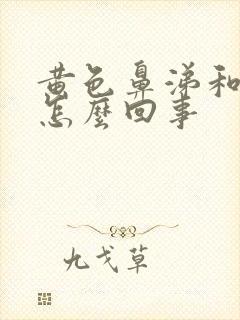 黄色鼻涕和
怎麼回事
九戈草